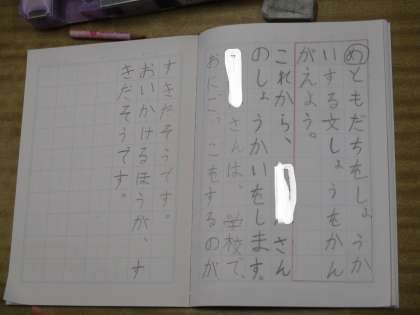 めともだちをしょうか
いする文しょうをかん
がえよう。
これから、さん
のしょうかいをします。
さんは、学校で、
おにごっこをするのが
すきだそうです。
おいかけるほうが、す
きだそうです。